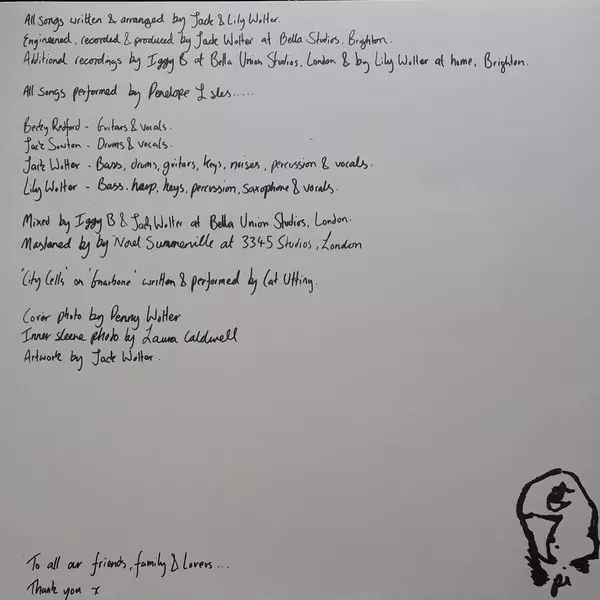 All songs written & arranged by Jack & Lily Wolter.
Engineered, recorded & produced by Jack Wolter at Bella Studios, Brighton.
Additional recordings by Iggy B at Bella Union Studios, London & by Lily Wolter at home, Brighton.
All songs performed by Penelope Isles.....
Becky Redford - Guitars & vocals.
Jack Sowton - Drums & vocals.
Jack Wolter - Bass, drums, guitars, keys, noises, percussion & vocals.
Lily Wolter - Bass. harp, keys, percussion, saxophone & vocals.
Mixed by Iggy B & Jack Wolter at Bella Union Studios, London.
Mastered by by Noel Summerville at 3345 Studios, London
'City Cells' on 'Gnarbone' written & performed by Cat Utting.
Cover photo by Penny Wolter
Inner sleeve photo by Laura Caldwell
Artwork by Jack Wolter.
To all our friends, family & Lovers...
Thank you x
pi